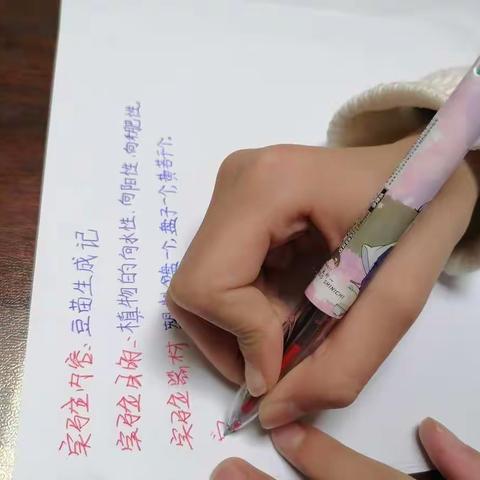 实验内容：豆苗生成记
实验目的：植物的向水性、向阳性、向肥性
实验器材 盘一个，盘子一个，黄豆若干。
SHINICHI